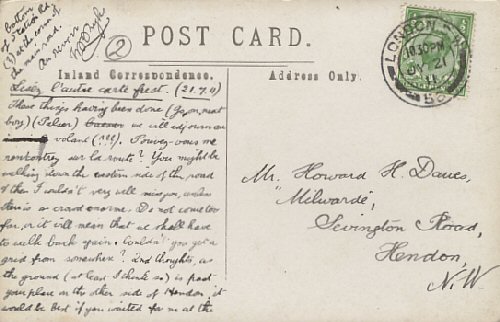 bottom
of Station Rd.
(3) at the corner of
the main road.
Au revoir
2
POST CARD.
Inland Correspondence.
Address Only.
LONDON, N.W.
10.30 PM
JY 21
11
Lisez l'autre carte first. (21.7.11)
These things having been done (Go, on, neat
boy) (Tulier) we will adjourn an
volant (!!!). Pouvez-vous me
rencontrer sur la route? You might be
walking down the eastern side of the road
& then I wouldn't very well miss you, unless
there is a crowd enorme. Do not come too
far, or it will mean that we shall have
to walk back again. Couldn't you get a
grid from somewhere? 2nd thoughts, as
the ground (at least I think so) is past
your place on the other side of Hendon, it
would be best if you waited for me at the
Mr. Howard H. Dawes,
"Milwarde",
Sevington Road,
Hendon,
N.W.